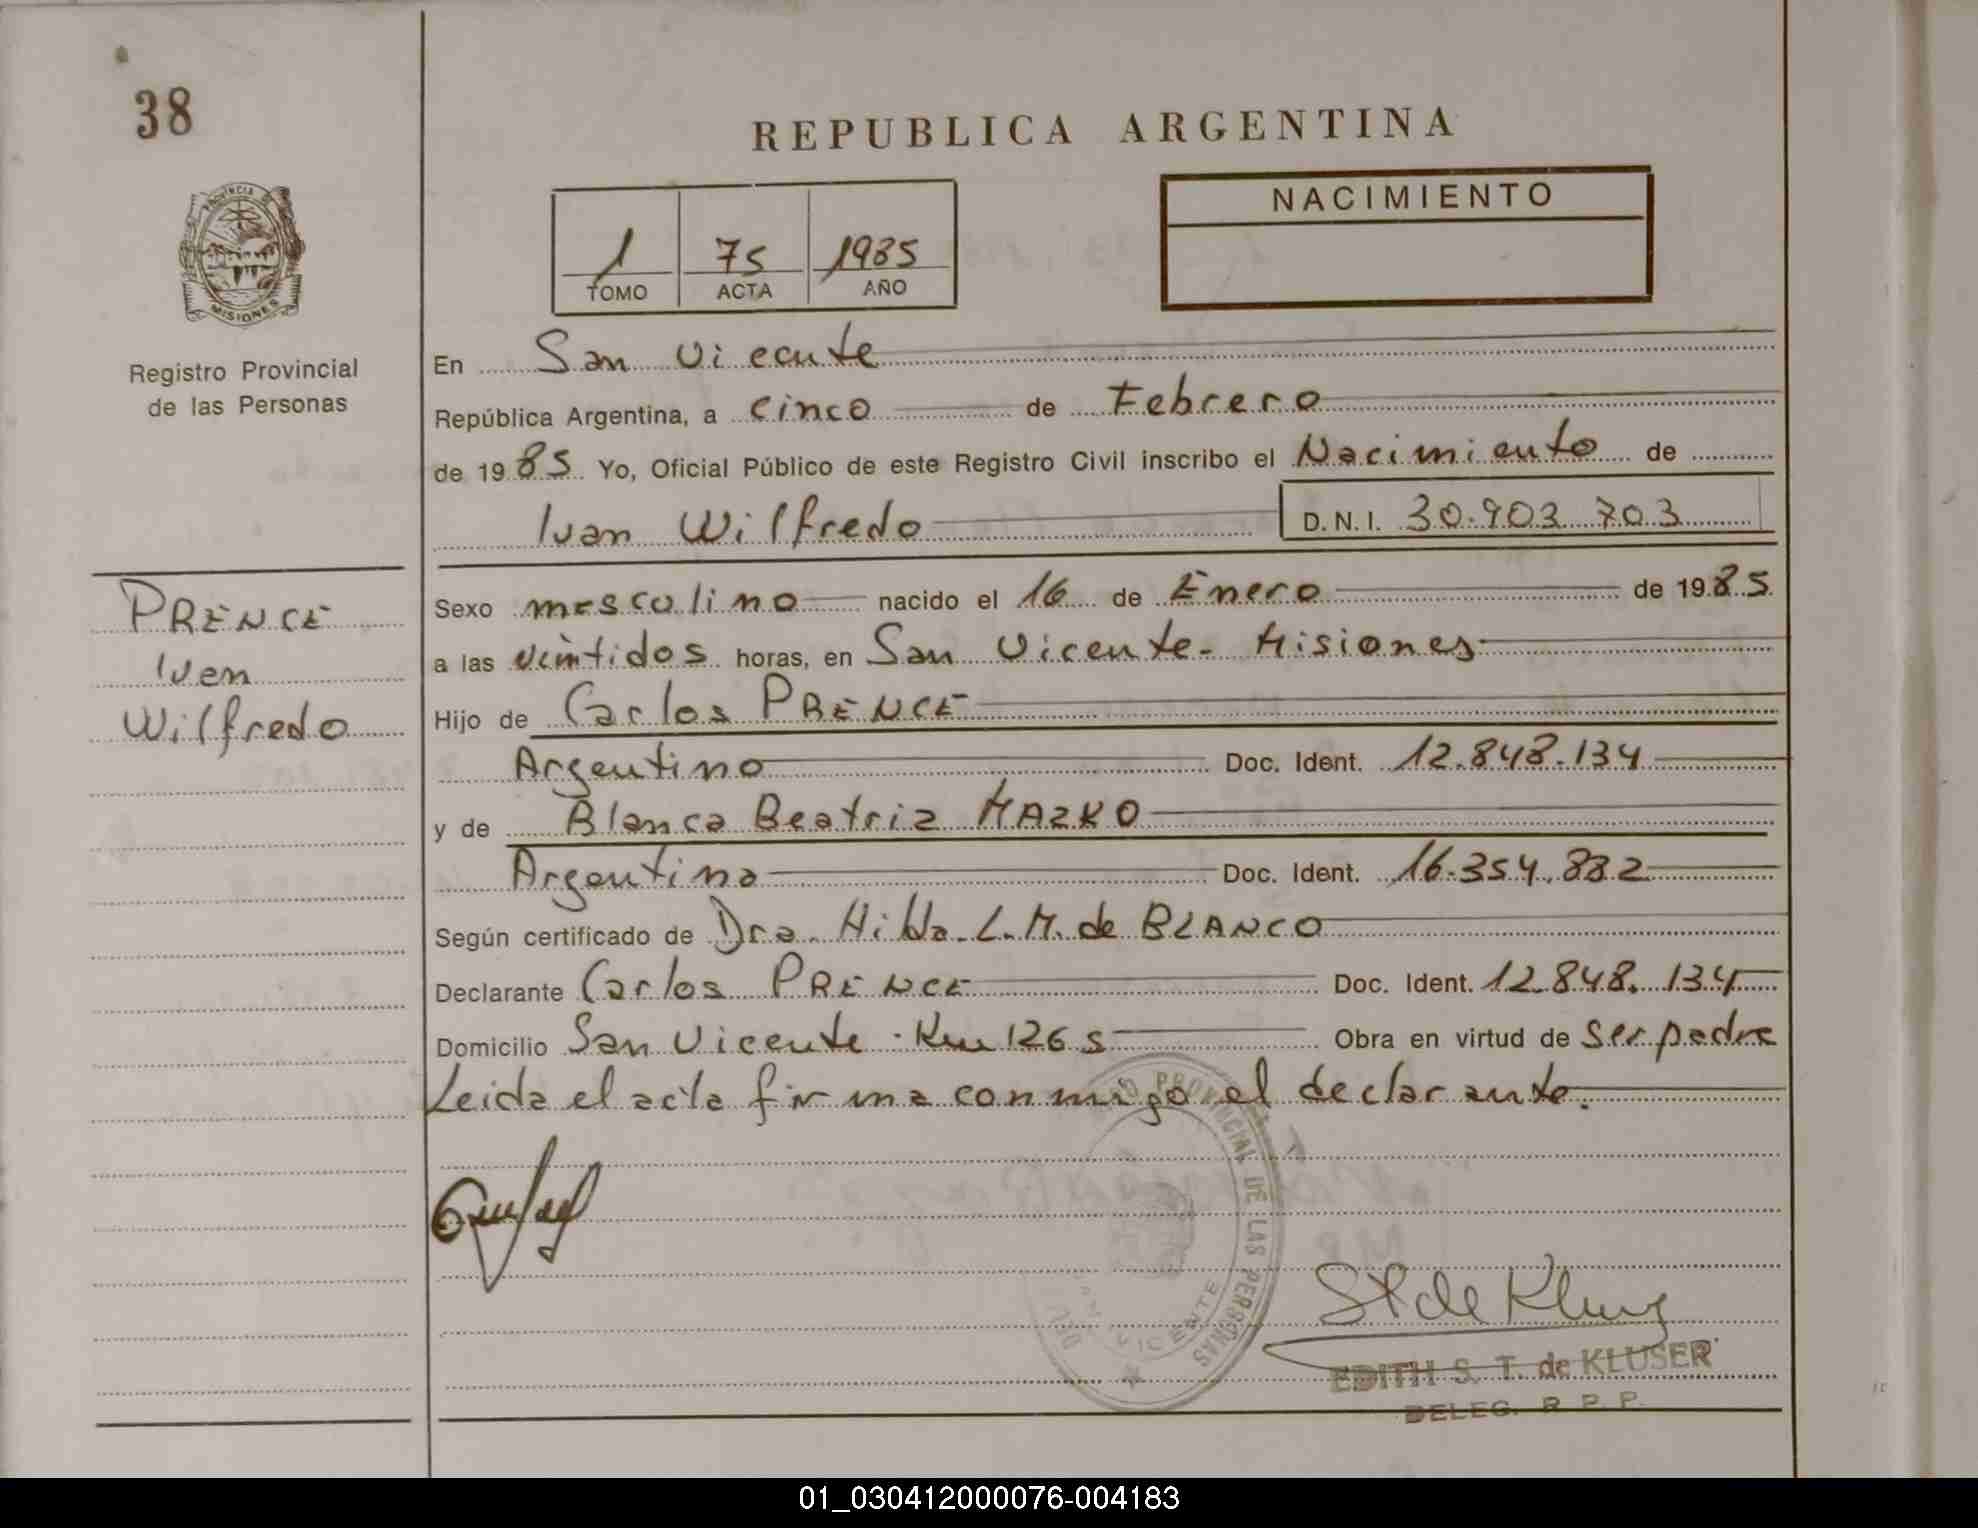 38
REPUBLICA ARGENTINA
PROVINCIA
MISIONES
Registro Provincial
de las Personas
1 75 1985
TOMO ACTA AÑO
NACIMIENTO
En San Vicente
República Argentina, a cinco de Febrero
de 1985 Yo, Oficial Público de este Registro Civil inscribo el Nacimiento de
Ivan Wilfredo D.N.I. 30.903.703
PRENCE
Iven
Wilfredo
Sexo masculino nacido el 16 de Enero de 1985
a las vintidos horas, en San Vicente - Misiones
Hijo de Carlos PRENCE
Argentino Doc. Ident. 12.848.134
y de Blanca Beatriz MAZKO
Argentina Doc. Ident. 16.354.882
Según certificado de Dra. Hilda L. M. de BLANCO
Declarante Carlos PRENCE Doc. Ident. 12.848.134
Domicilio San Vicente - Km 1265 Obra en virtud de ser padre
Leida el acta firma conmigo el declarante.
PROVINCIAL DE LAS PERSONAS
VICENTE
DEL
EDITH S. T. de KLUSER
DELEG. R. P. P.
01_030412000076-004183